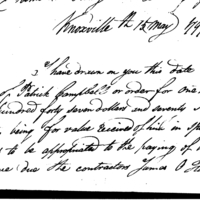 Knoxville th 15 May 179
I have drawn on you this date
of Patrick Campbell's or order for one
hundred forty seven dollars and seventy
being for value received of him in spe
to be appropriated to the paying of
due the contractors James O